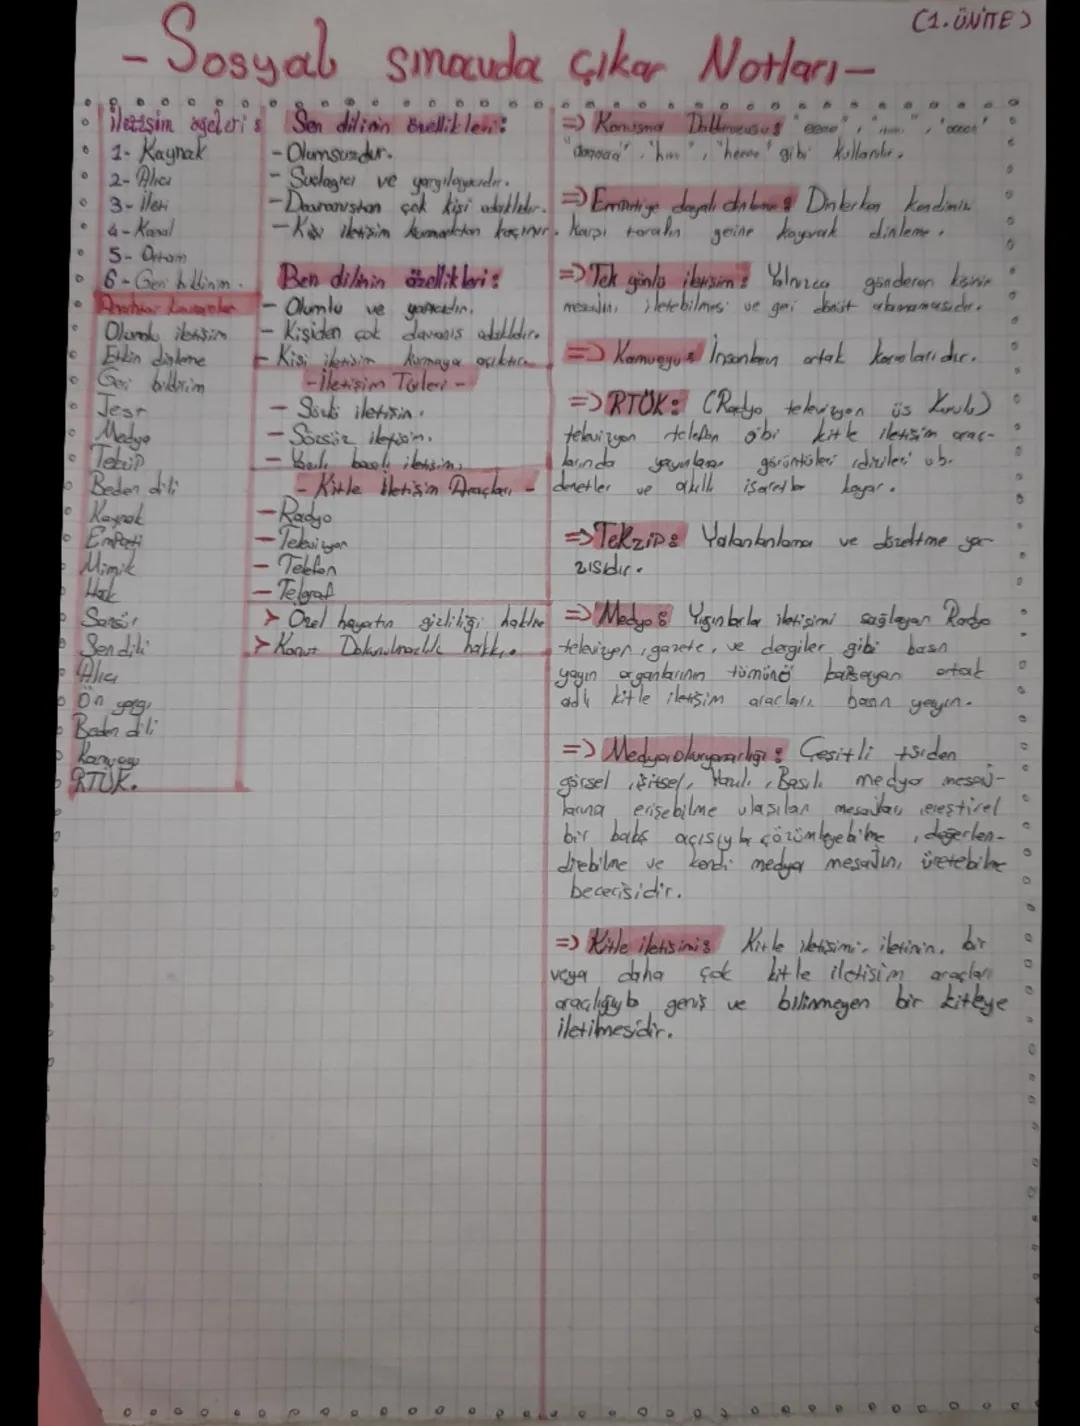 (1.ÜNİTE)
- Sosyal sınavda çıkar Notları -
İletişim ögeleri:
1- Kaynak
2- Alıcı
3- İleti
4- Kanal
5- Ortam
6- Geri bildirim.
Anahtar kavramlar
Olumlu iletişim
Etkin dinleme
Geri bildirim
Jest
Medya
Tekzip
Beden dili
Kaynak
Empati
Mimik
Hak
Sansür
Sen dili
Alıcı
Ön yargı
Beden dili
Kamuoyu
RTÜK.
Sen dilinin özellikleri:
- Olumsuzdur.
- Suçlayıcı ve yargılayıcıdır.
- Davranıştan çok kişi odaklıdır.
- Kişi iletişim kurmaktan kaçınır.
Ben dilinin özellikleri:
- Olumlu ve yapıcıdır.
- Kişiden çok davranış odaklıdır.
- Kişi iletişim kurmaya açıktır.
- İletişim Türleri -
- Sözlü iletişim.
- Sözsüz iletişim.
- Yazılı basılı iletişim.
- Kitle İletişim Araçları -
- Radyo
- Televizyon
- Telefon
- Telgraf
> Özel hayatın gizliliği hakkı
> Konut Dokunulmazlık hakkı.
=> Konuşma "eeee", "oooo"
"hım", gibi kullanılır.
=> Empatiye dayalı dinleme: Dinlerken kendimizi
karşı tarafın yerine koyarak dinleme.
=> Tek yönlü iletişim: Yalnızca gönderen kişinin
mesajını iletebilmesi ve geri dönüt alamamasıdır.
=> Kamuoyu: İnsanların ortak kararlarıdır.
=> RTÜK: (Radyo televizyon üs Kurulu)
televizyon telefon gibi kitle iletişim araç-
larında yayınlanan görüntüleri dizileri vb.
denetler ve akıllı işaretler koyar.
=> Tekzip: Yalanlanlama ve düzeltme ya-
zısıdır.
=> Medya: Yığınlarla iletişimi sağlayan Radyo
televizyon, gazete, ve dergiler gibi basın
yayın organlarının tümünü kapsayan ortak
adı kitle iletişim araçları basın yayın.
=> Medya okuryazarlığı: Çeşitli türden
görsel, işitsel, Yazılı, Basılı medya mesaj-
larına erişebilme ulaşılan mesajları eleştirel
bir bakış açısıyla çözümleyebilme, değerlen-
direbilme ve kendi medya mesajını üretebilme
becerisidir.
=> Kitle iletişimi: Kitle iletişimi, iletinin, bir
veya daha çok kitle iletişim araçları
aracılığıyla geniş ve bilinmeyen bir kitleye
iletilmesidir.